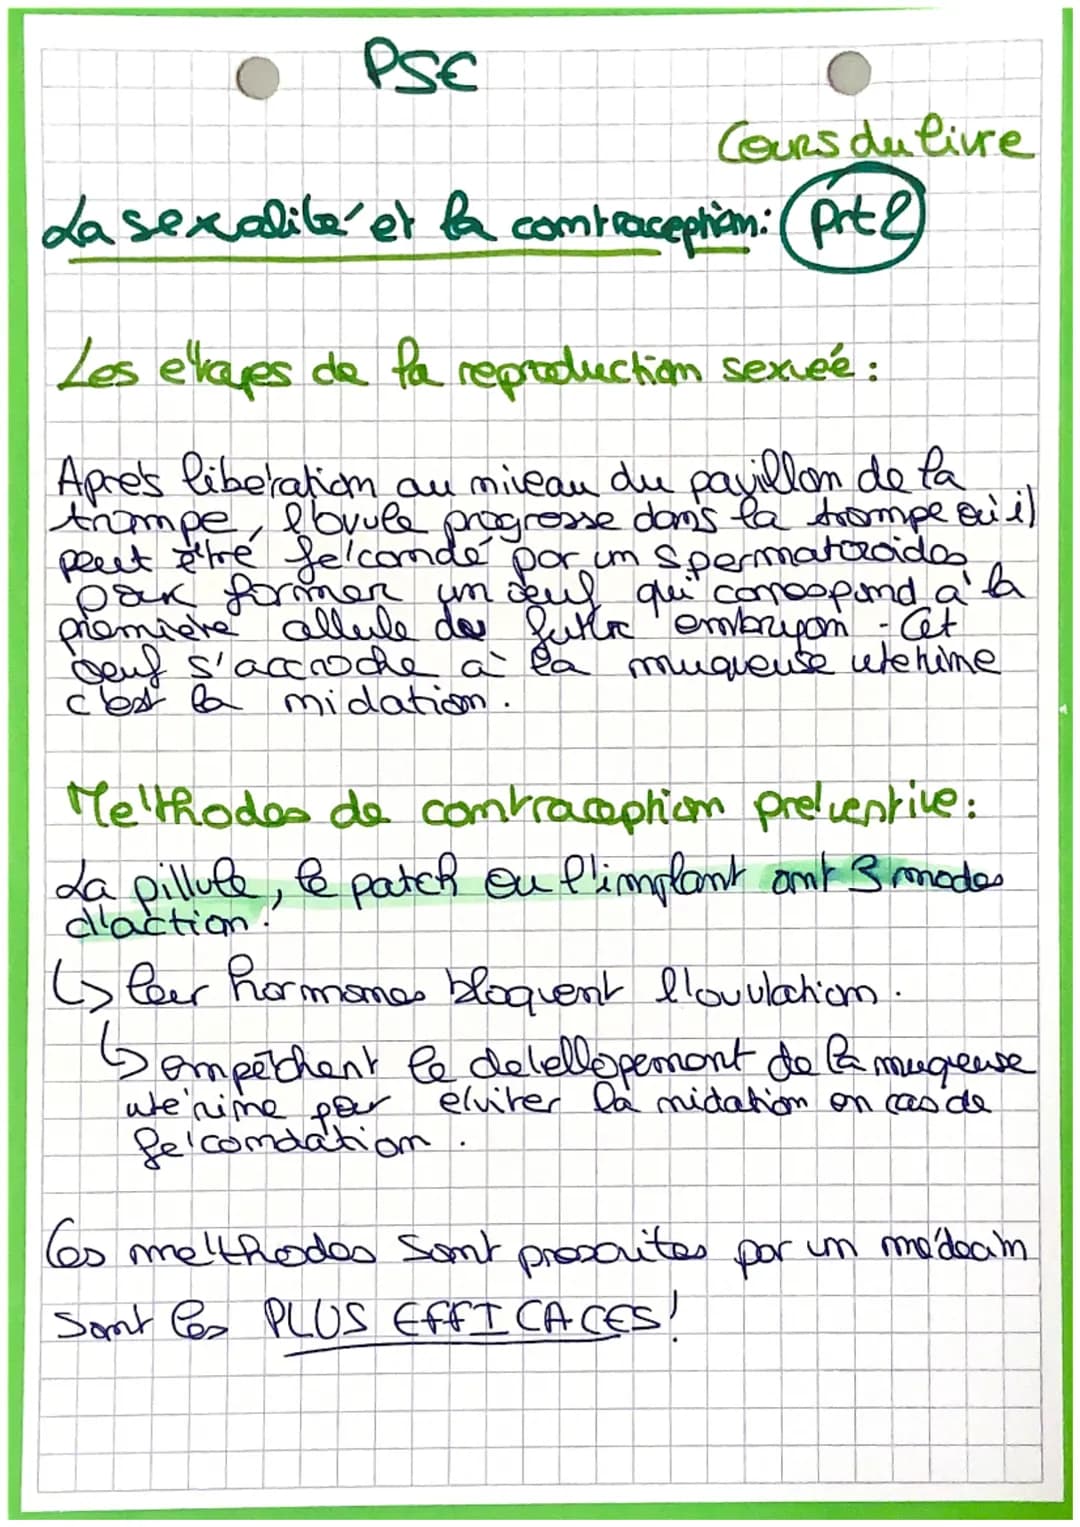 PSE
Cours du livre
La sexcalité et la contraception: prt 2
Les étapes de la reproduction sexuée :
Après libération au niveau du pavillon de la
trompe, l'ovule progresse dans la trompe où il
peut être fécondé par un spermatozoides
pour former un œuf qui correspond à la
première allule des futur embryon. Cet
oeuf s'accroche à la muqueuse utérine
c'est la nidation.
Méthodes de contraception préventive :
La pillule, le patch ou l'implant ont 3 modes
d'action :
↳ leur hormones bloquent l'ovulation.
↳ empêchent le dévellopement de la muqueuse
utérine pour éviter la nidation en cas de
fécondation.
Ces méthodes sont prescrites par un médecin
sont les PLUS EFFICACES!